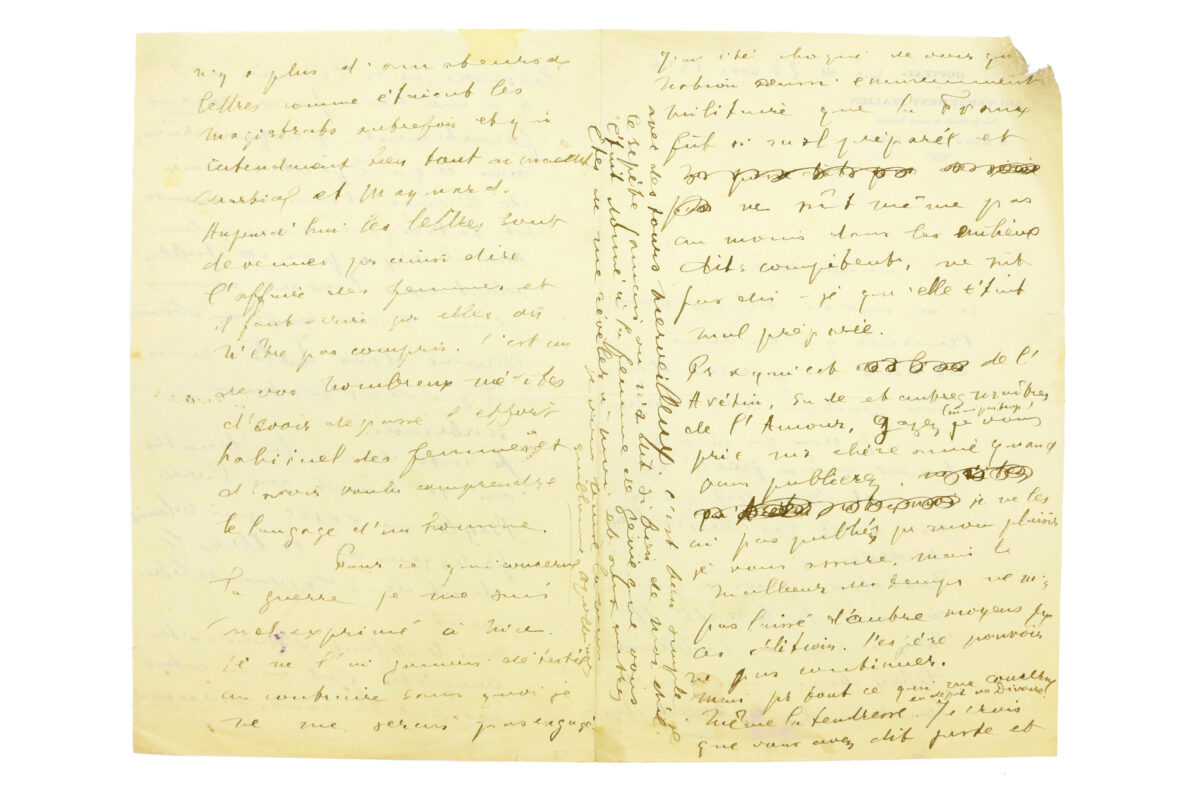 n'y a plus d'amateurs de
lettres comme étaient les
magistrats autrefois et qui
entendaient bien tout
Martial et Maynard.
Aujourd'hui les lettres sont
devenues pr ainsi dire
l'affaire des femmes et
il faut écrire pr elles ou
n'être pas compris. C'est un
de vos nombreux mérites
d'avoir dépassé l'effort
habituel des femmes et
d'avoir voulu comprendre
le langage d'un homme.
Pour ce qui concerne
la guerre je me suis
mal exprimé à Nice.
Je ne l'ai jamais détestée
au contraire sans quoi je
ne me serais pas engagé
J'ai été choqué de voir qu'
nation aussi éminemment
militaire que la France
fût si mal préparée et
ne sût même pas
au moins dans les milieux
dits compétents, ne sût
pas dis-je qu'elle était
mal préparée.
Pr ce qui est de l'
Arétin, Sade et autres maîtres
de l'Amour, gazez je vous
prie ma chère amie quand
vous publierez. je ne les
ai pas publiés pr mon plaisir
je vous assure, mais le
malheur des temps ne m'a
pas laissé d'autre moyen
ces éditions. J'espère pouvoir
ne pas continuer.
Mais pr tout ce qui me
même la tendresse. Je crois
que vous avez dit juste et
avec des tours merveilleux, c'est bien simple je
le répète jamais on n'a dit si bien de moi
c'était donné à la femme de génie que vous
êtes de me révéler à moi et aux autres
je vous
Guillaume Apollinaire